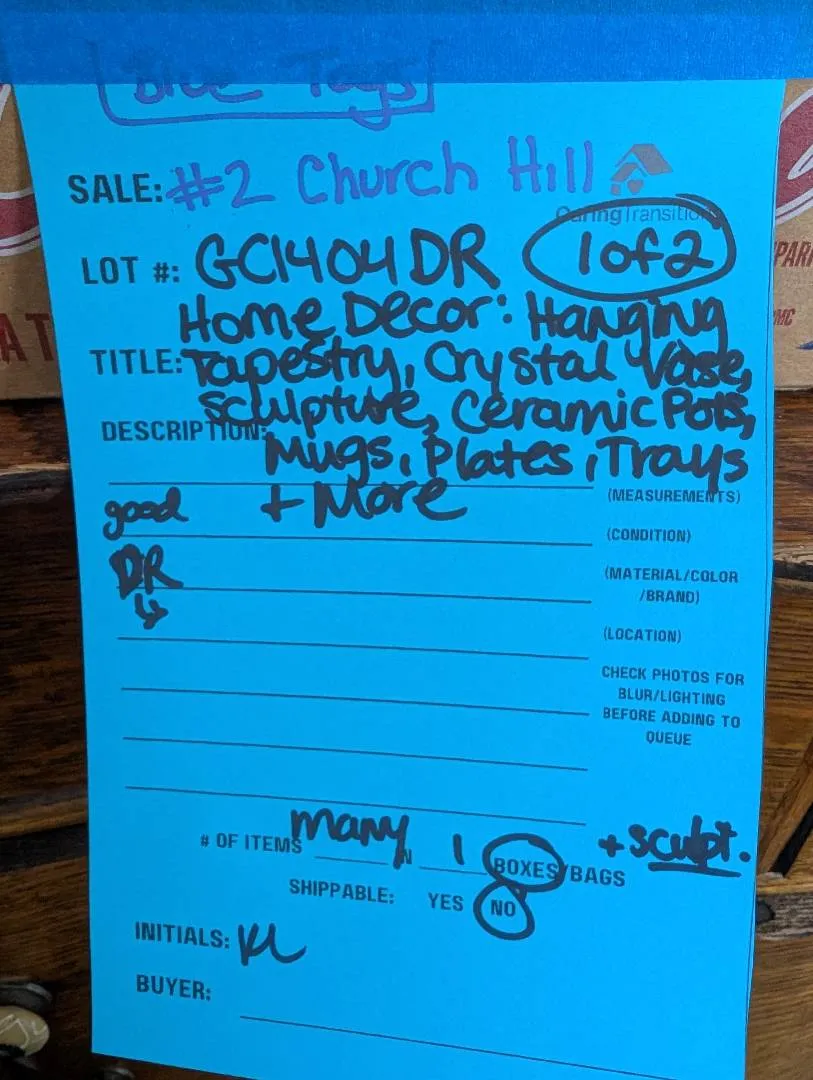 Blue Tags
SALE: #2 Church Hill
CaringTransitions
LOT #: GC1404DR 1 of 2
Home Decor: Hanging
TITLE: Tapestry, Crystal Vase,
Sculpture, Ceramic Pots,
DESCRIPTION: Mugs, Plates, Trays
+ More
(MEASUREMENTS)
good
(CONDITION)
DR
(MATERIAL/COLOR
/BRAND)
(LOCATION)
CHECK PHOTOS FOR
BLUR/LIGHTING
BEFORE ADDING TO
QUEUE
# OF ITEMS many IN 1 BOXES/BAGS + sculpt.
SHIPPABLE: YES NO
INITIALS: KL
BUYER: